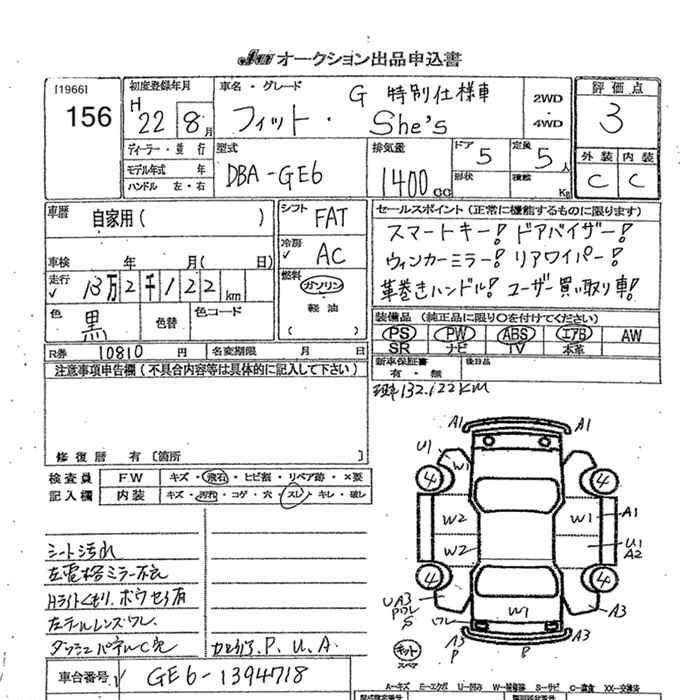 JU オークション出品申込書
[1966]
156
初度登録年月
H 22 8月
車名・グレード
G 特別仕様車
フィット・ She's
2WD
4WD
評価点
3
外装 内装
C C
ディーラー・並行
モデル年式 年
ハンドル 左・右
型式
DBA-GE6
排気量
1400 CC
ドア 5
定員 5人
形状
積載 Kg
車歴 自家用( )
車検 年 月( 日)
走行 13万2千122 km
色 黒 色替 色コード
シフト FAT
冷房 AC
燃料 ガソリン
軽油
( )
セールスポイント(正常に機能するものに限ります)
スマートキー! ドアバイザー!
ウィンカーミラー! リアワイパー!
革巻きハンドル! ユーザー買い取り車!
装備品(純正品に限り○を付けてください)
PS PW ABS エアB AW
SR ナビ TV 本革
R券 10810 円 名変期限 月 日
新車保証書 有・無 後日品
注意事項申告欄(不具合内容等は具体的に記入して下さい)
132,122KM
修復歴 有[箇所 ]
検査員 FW キズ・飛石・ヒビ割・リペア跡・×要
記入欄 内装 キズ・汚れ・コゲ・穴・スレ・キレ・破レ
シート汚れ
左電格ミラー不良
Hライトくもり、ボウセイ有
左テールレンズワレ
P. U. A.
A1 A1
U1 W1
4 4
W2 W1 A1
W2 U1 A2
4 4
UA3 Pワレ S
W1
ワレ
A3 P
B
A3 A3
キット
スペア
車台番号 GE6-1394718
A=キズ E=エクボ U=凹み W=補修跡 S=サビ C=腐食 XX=交換済